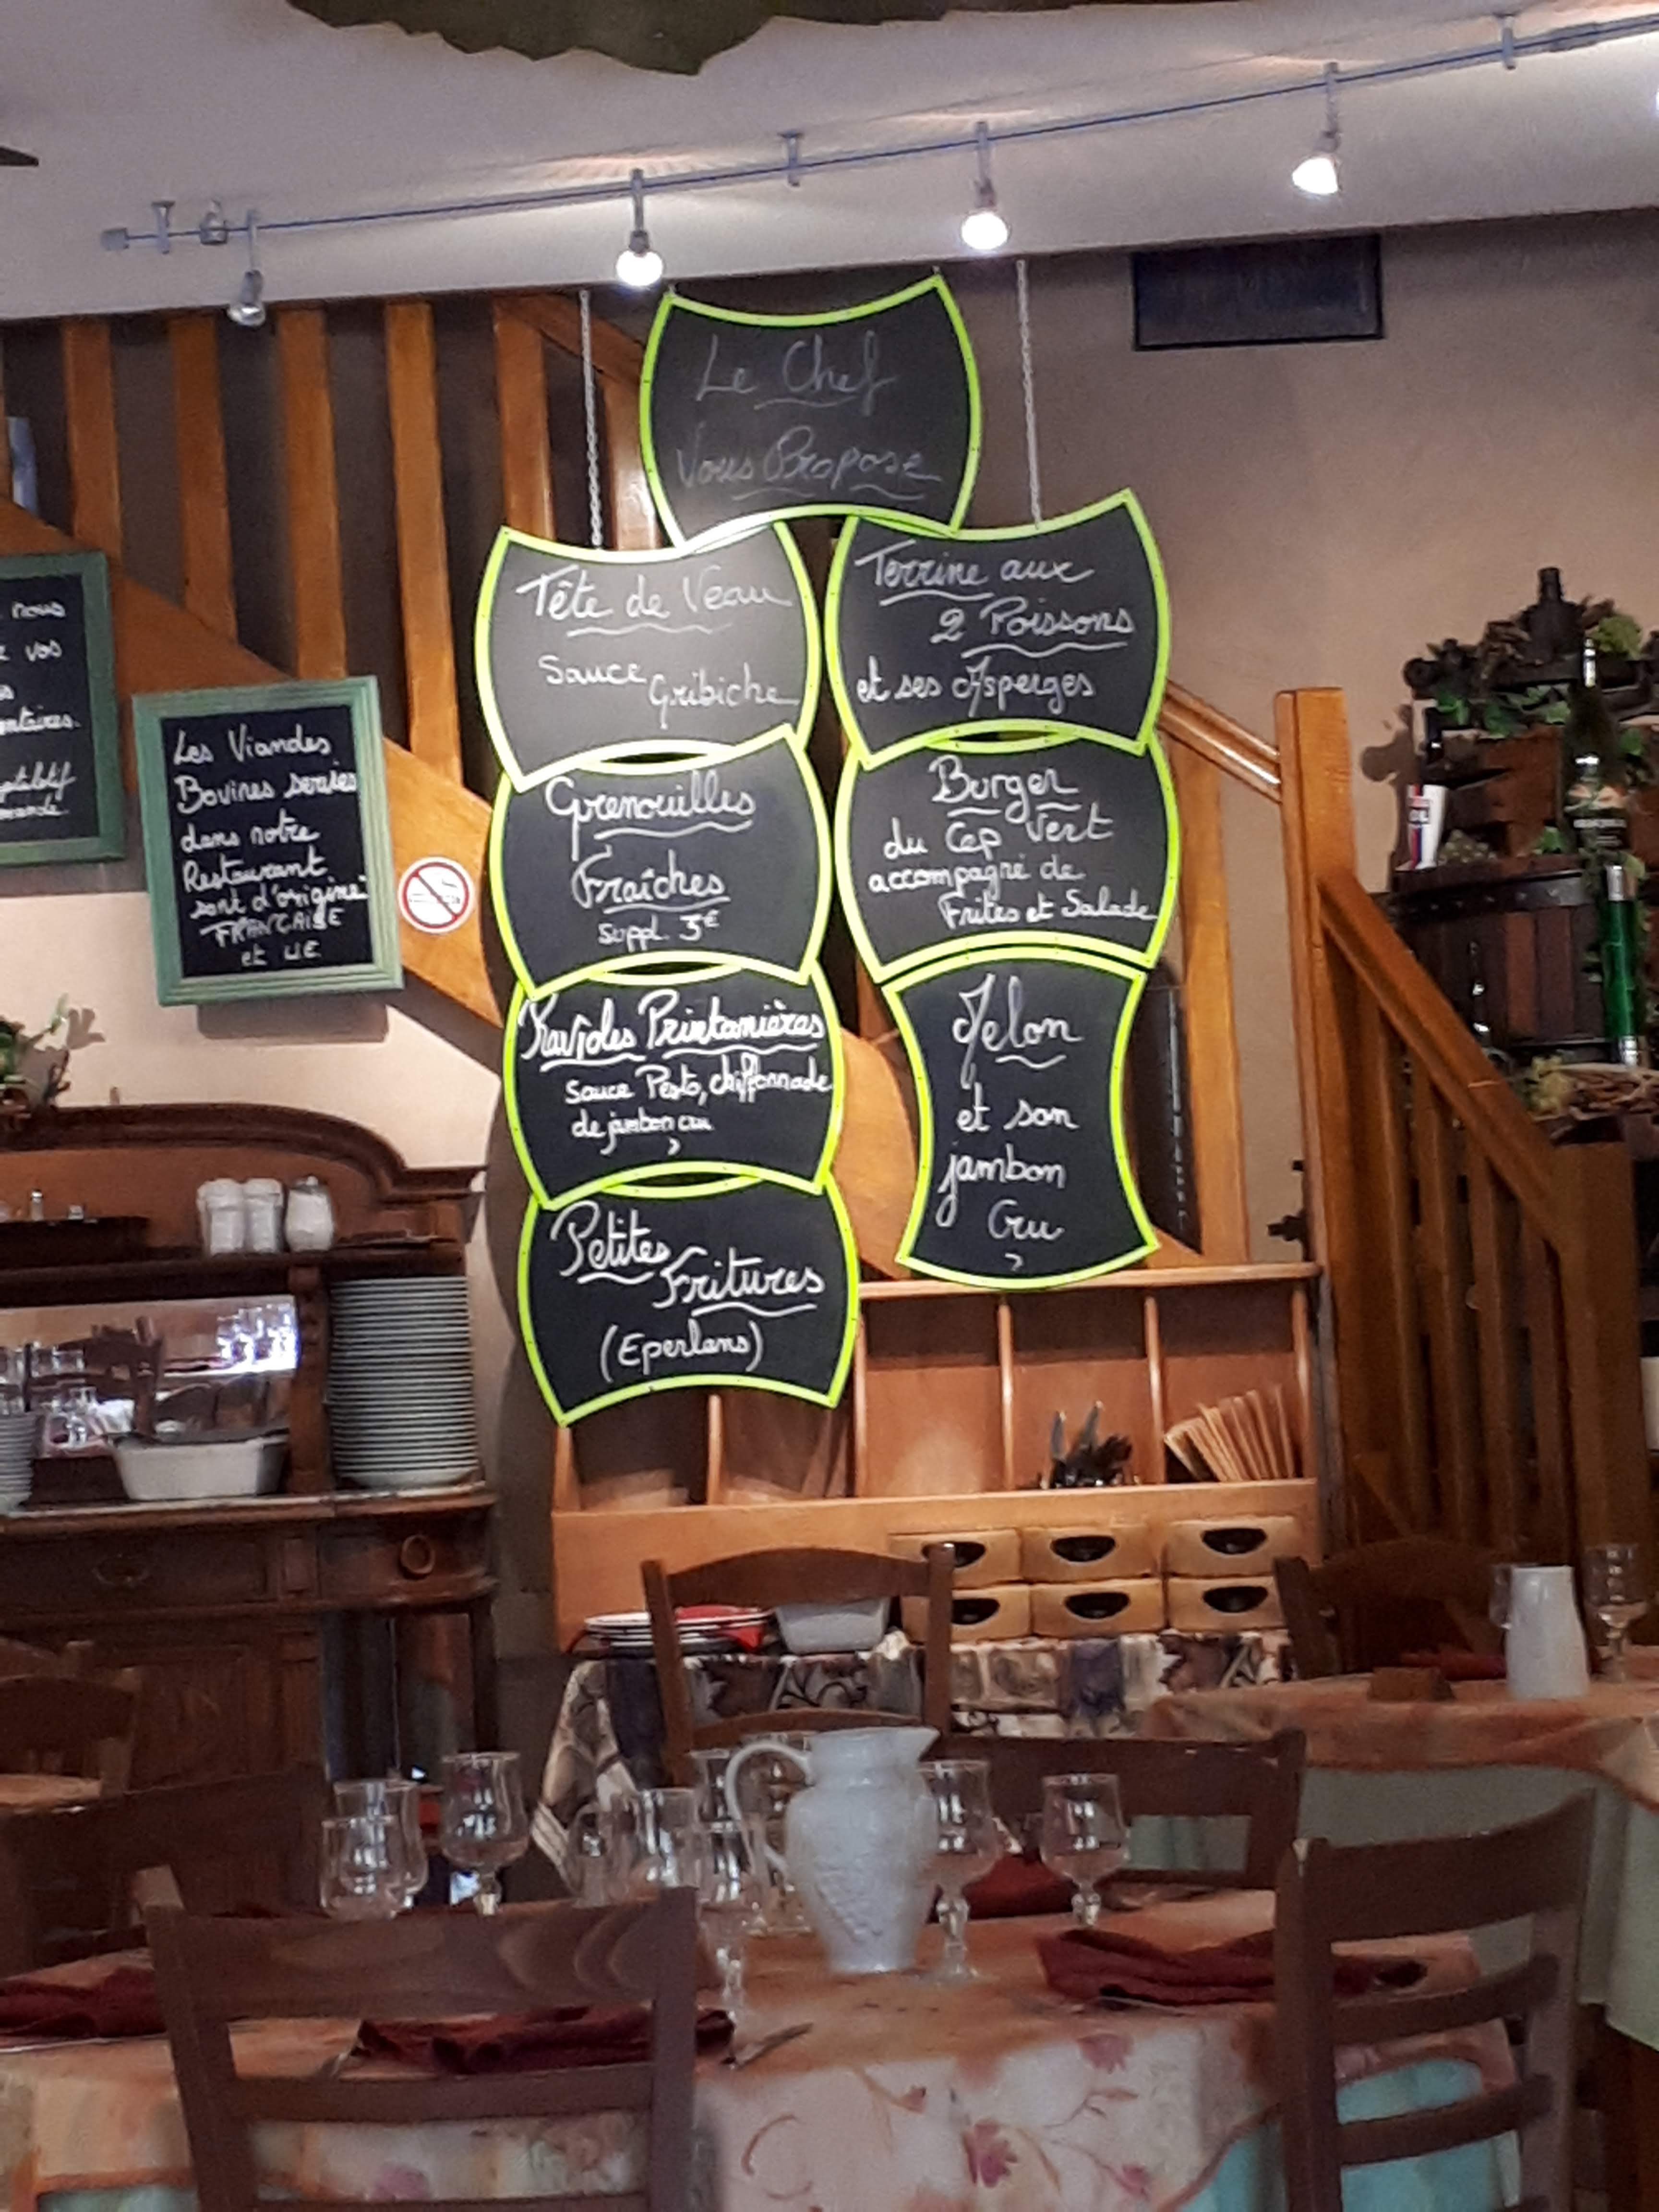 Le Chef
Vous Propose
Tête de Veau
Sauce Gribiche
Grenouilles
Fraîches
Suppl. 3€
Ravioles Printanières
Sauce Pesto, chiffonnade
de jambon cru
Petites
Fritures
(Eperlans)
Terrine aux
2 Poissons
et ses Asperges
Burger
du Cep Vert
accompagné de
Frites et Salade
Melon
et son
jambon
Cru
nous
vos
Les Viandes
Bovines servies
dans notre
Restaurant
sont d'origine
FRANÇAISE
et UE